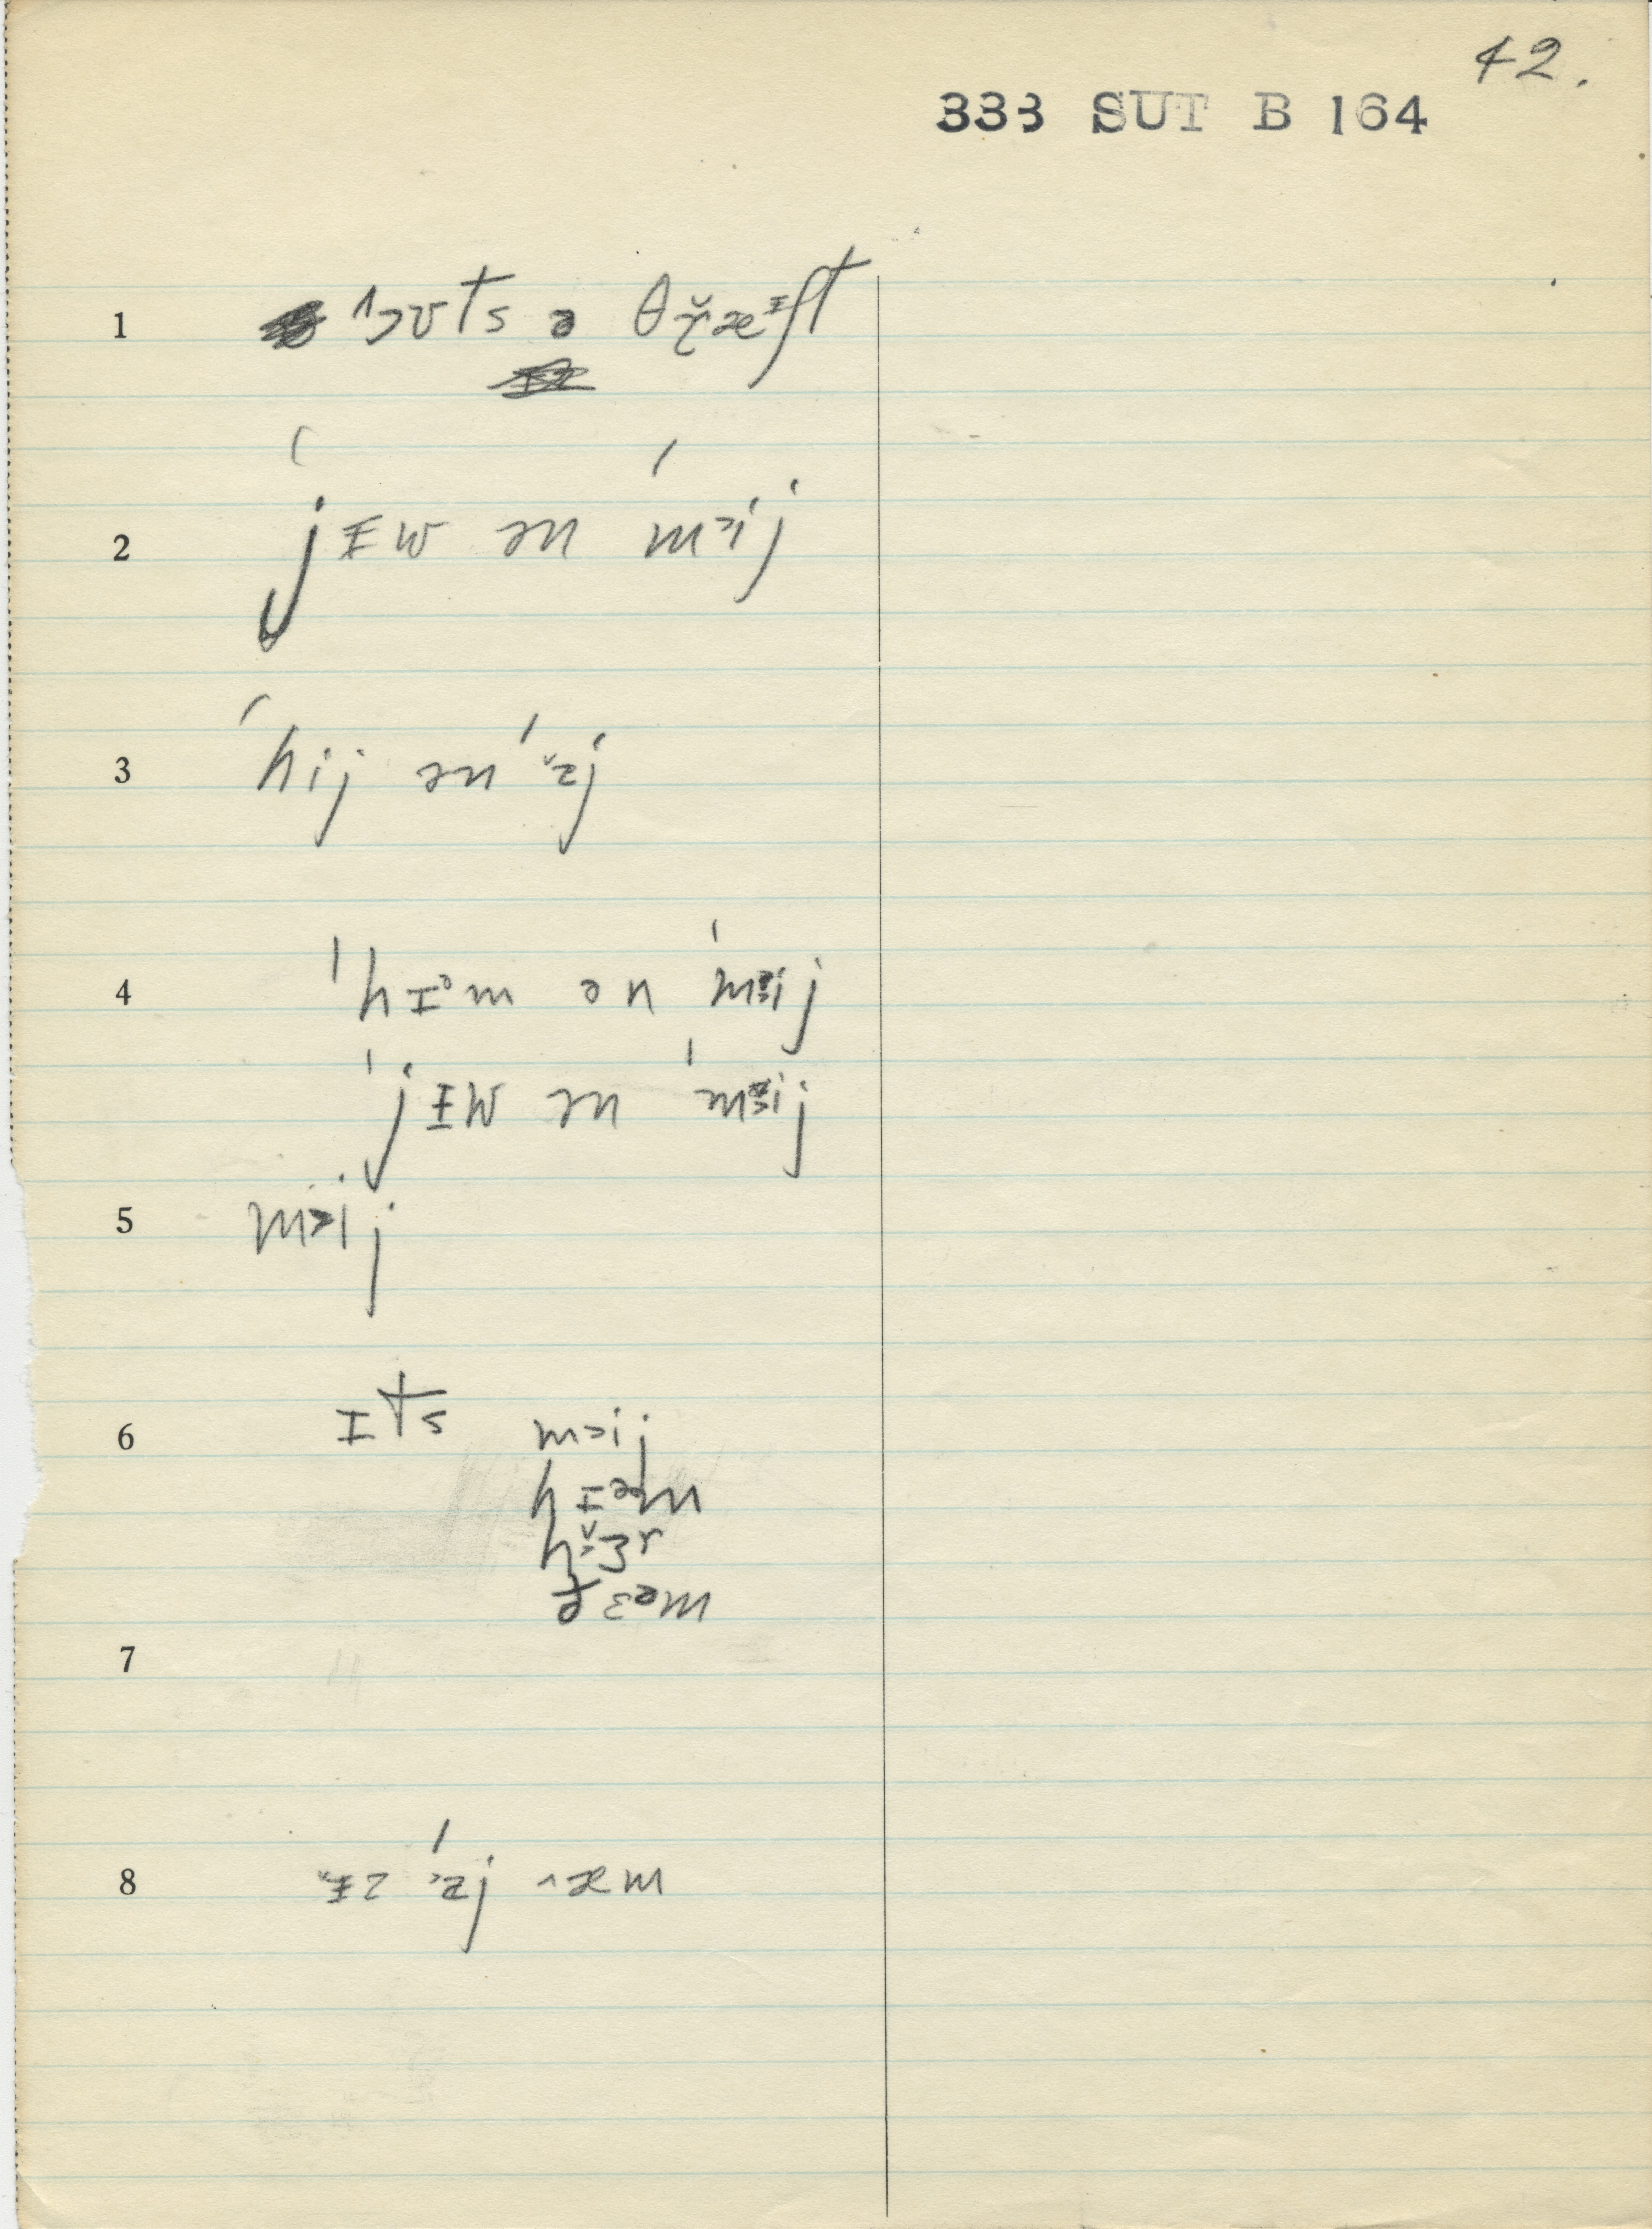 42.
333 SUT B 164
1 ˈɔʊts ə θɽ̆æᵻft
2 ˈjᵻw ən ˈmɔij
3 ˈhij ən ˈɜ̆j
4 ˈhɪəm ən ˈmɜij
ˈjᵻw ən ˈmɜij
5 mɔij
6 ɪts mɔij
hɪəm
hɜr
ðɛəm
7
8 ᵻz